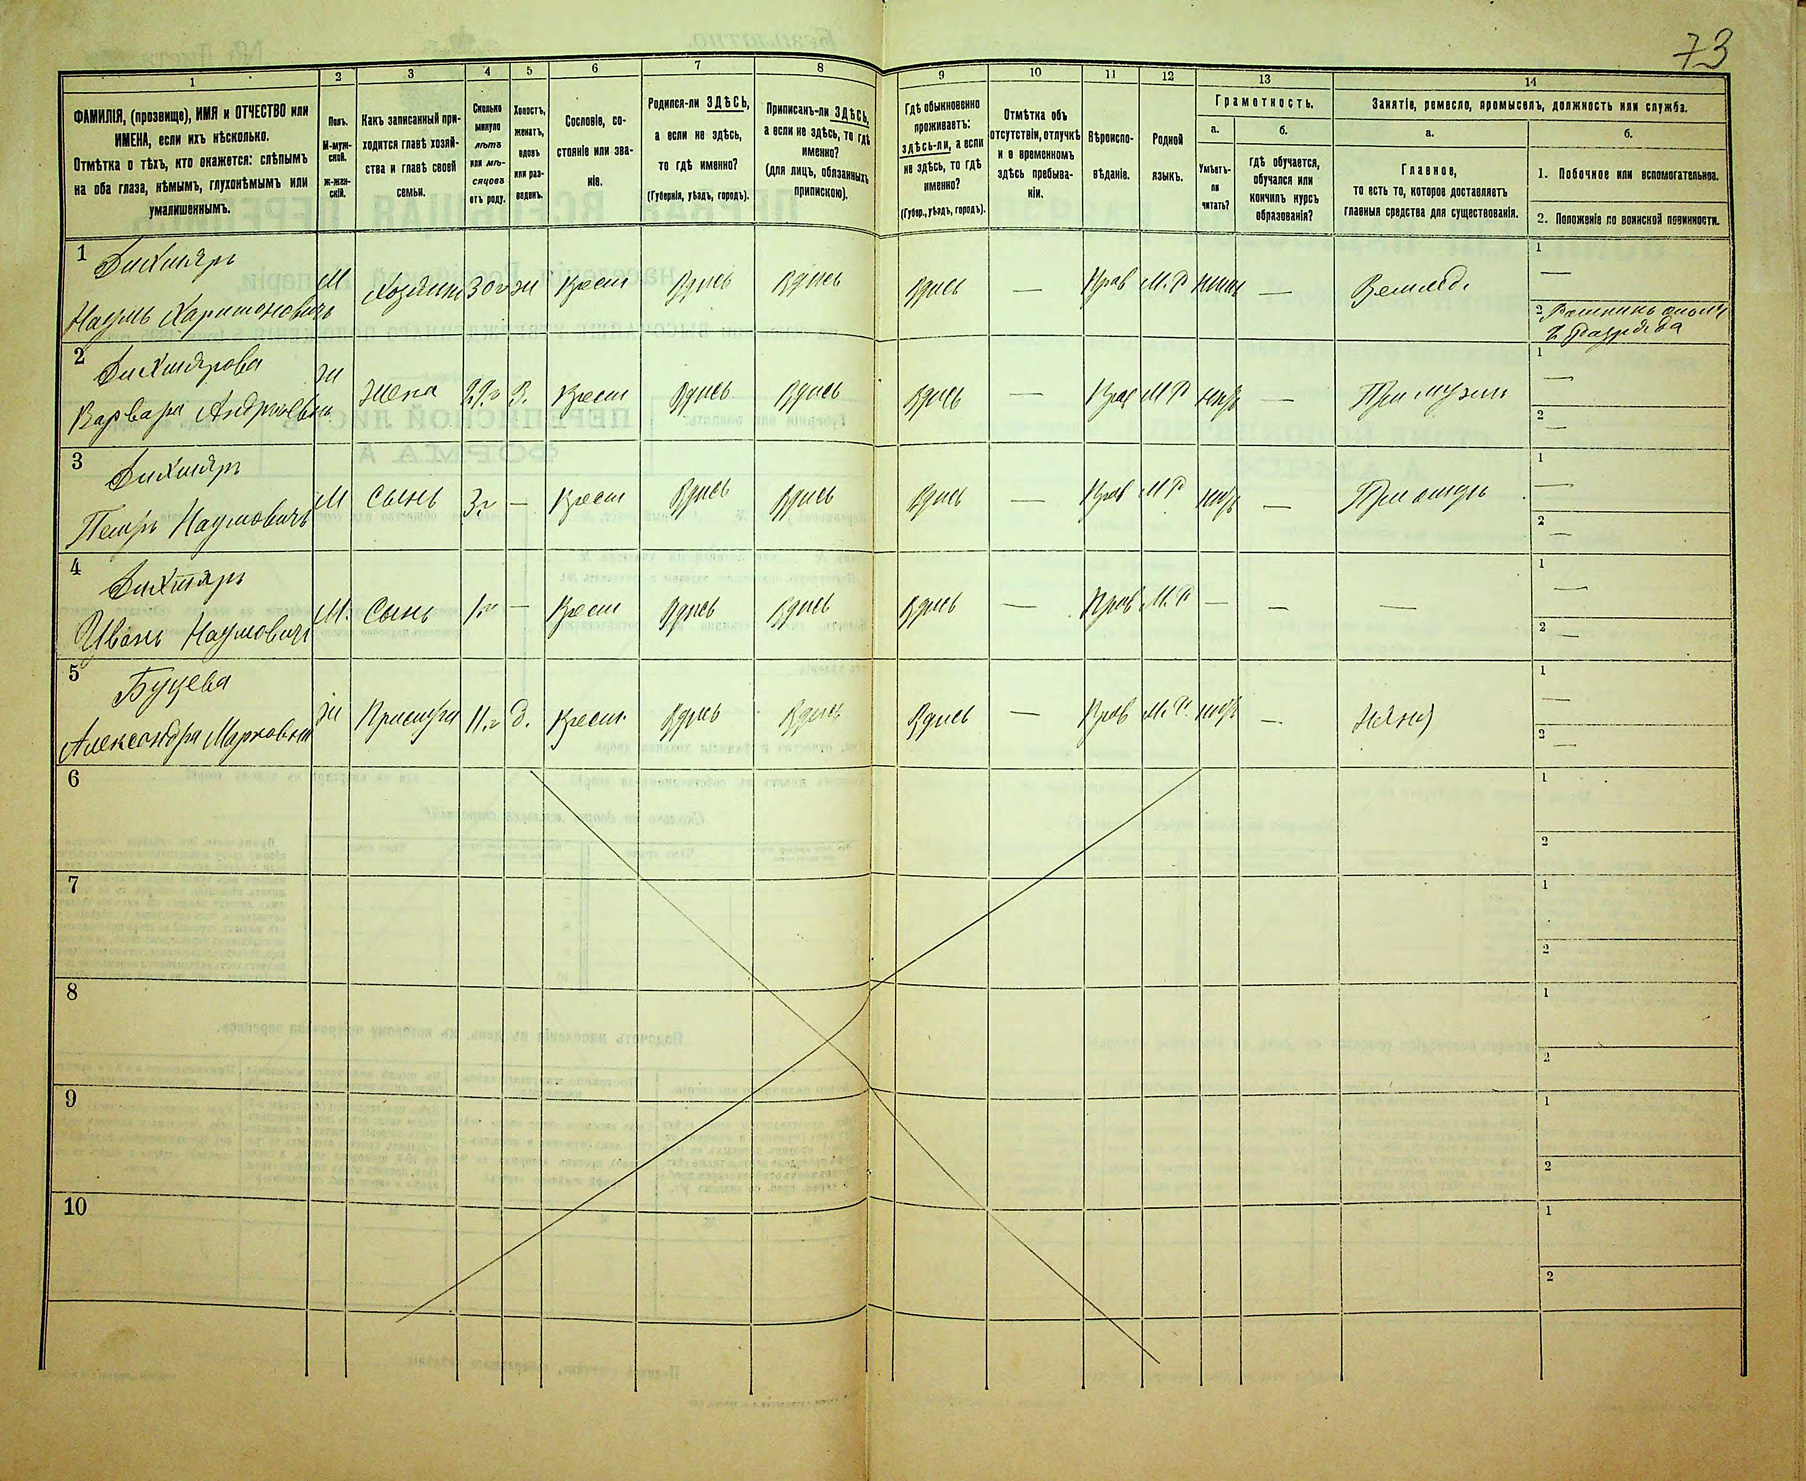 73
1 2 3 4 5 6 7 8 9 10 11 12 13 14
ФАМИЛІЯ, (прозвище), ИМЯ и ОТЧЕСТВО или
ИМЕНА, если ихъ нѣсколько.
Отмѣтка о тѣхъ, кто окажется: слѣпымъ
на оба глаза, нѣмымъ, глухонѣмымъ или
умалишеннымъ.
Полъ.
М-муж-
ской.
ж-жен-
скій.
Какъ записанный при-
ходится главѣ хозяй-
ства и главѣ своей
семьи.
Сколько
минуло
лѣтъ
или мѣ-
сяцовъ
отъ роду.
Холостъ,
женатъ,
вдовъ
или раз-
веденъ.
Сословіе, со-
стояніе или зва-
ніе.
Родился-ли ЗДѢСЬ,
а если не здѣсь,
то гдѣ именно?
(Губернія, уѣздъ, городъ).
Приписанъ-ли ЗДѢСЬ,
а если не здѣсь, то гдѣ
именно?
(для лицъ, обязанныхъ
припискою).
Гдѣ обыкновенно
проживаетъ:
здѣсь-ли, а если
не здѣсь, то гдѣ
именно?
(Губер., уѣздъ, городъ).
Отмѣтка объ
отсутствіи, отлучкѣ
и о временномъ
здѣсь пребыва-
ніи.
Вѣроиспо-
вѣданіе.
Родной
языкъ.
Грамотность.
а.
Умѣетъ-
ли
читать?
б.
Гдѣ обучается,
обучался или
кончилъ курсъ
образованія?
Занятіе, ремесло, промыселъ, должность или служба.
а.
Главное,
то есть то, которое доставляетъ
главныя средства для существованія.
б.
1. Побочное или вспомогательное.
2. Положеніе по воинской повинности.
1 Бихтяръ
Наумъ Харитоновичъ М Хозяинъ 30 г ж Крест Здѣсь Здѣсь Здѣсь — Прав М. Р — Землед. 1 —
2 Ратникъ ополч
2 Разряда
2 Бихтярова
Варвара Андреевна ж Жена З. Крест Здѣсь Здѣсь Здѣсь — Прав М Р — При мужѣ 1 —
2 —
3 Бихтяръ
Петръ Наумовичъ М Сынъ 3 г — Крест Здѣсь Здѣсь Здѣсь — Прав М Р — При отцѣ 1 —
2 —
4 Бихтяръ
Иванъ Наумовичъ М. Сынъ 1 г — Крест Здѣсь Здѣсь Здѣсь — Прав М. Р — — — 1 —
2 —
5 Буцева
Александра Марковна ж Прислуга 11 г д. Крест. Здѣсь Здѣсь Здѣсь — Прав М. Р. — Няня 1 —
2 —
6 1
2
7 1
2
8 1
2
9 1
2
10 1
2